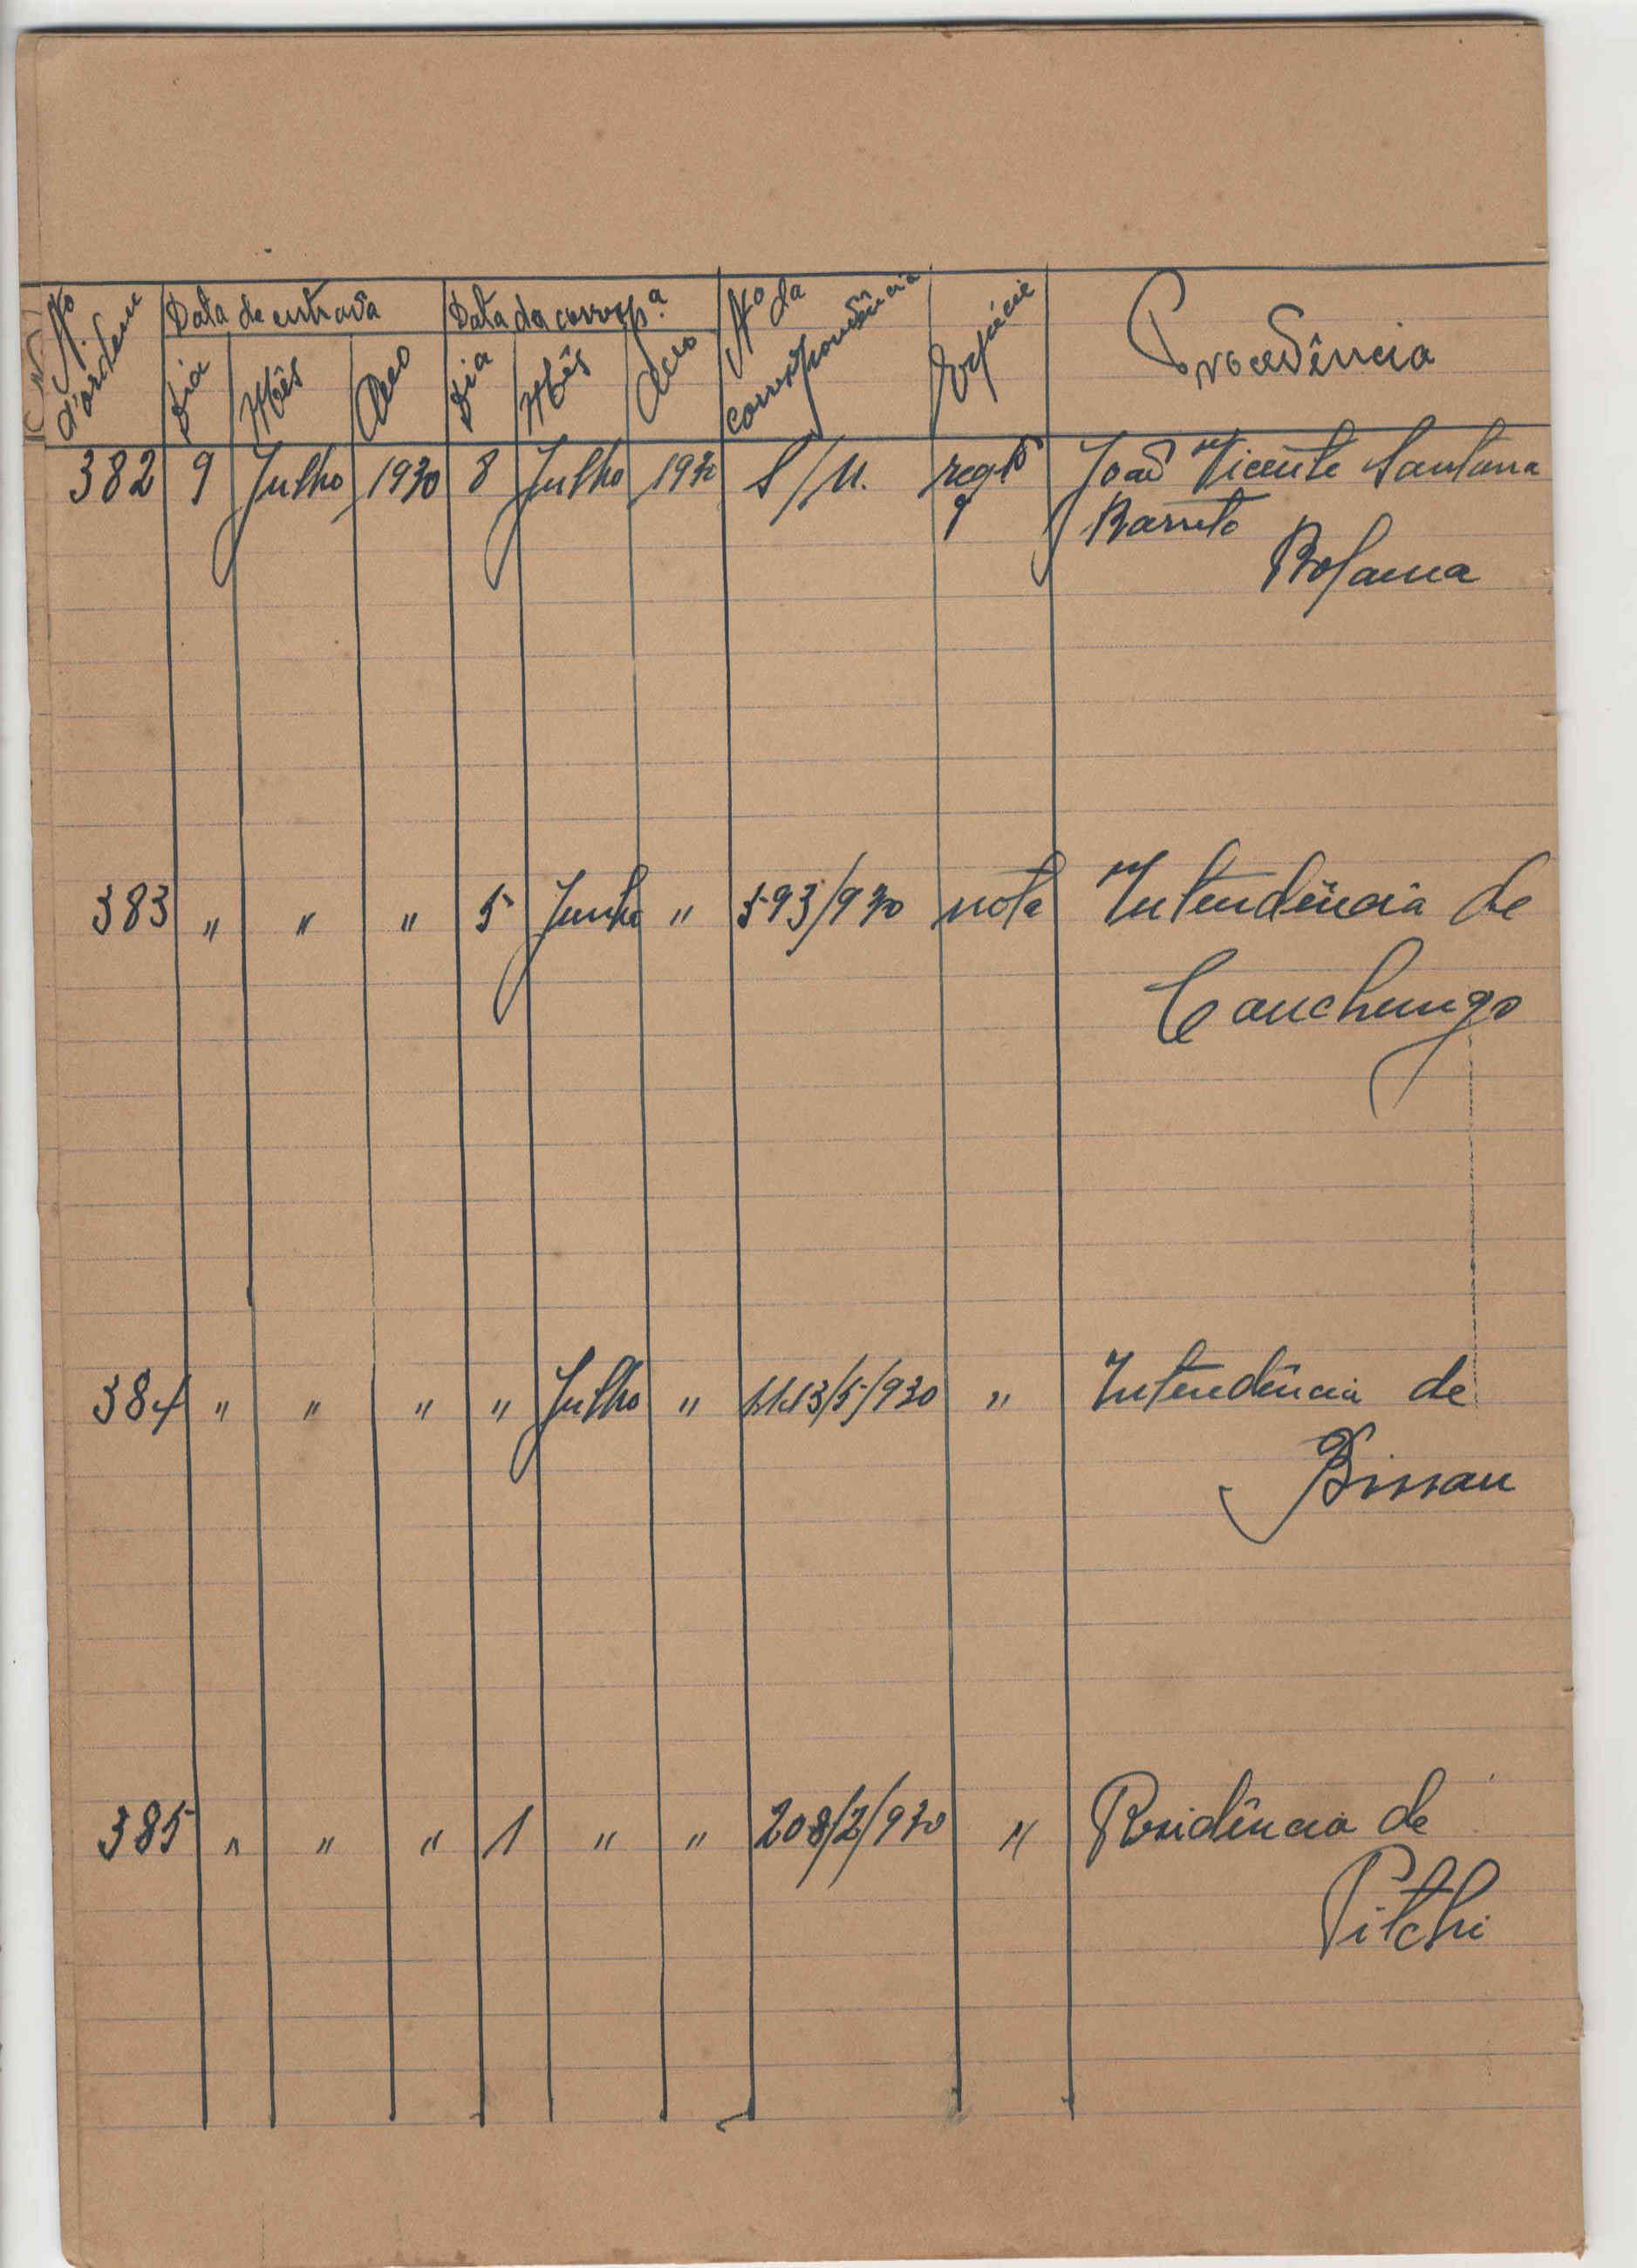 Nº d'ordem Data de entrada Data da corresp.ª Nº da correspondência Espécie Procedência
Dia Mês Ano Dia Mês Ano
382 9 Julho 1930 8 Julho 1930 S/N. reqtº João Vicente Santana
Barreto
Bolama
383 " " " 5 Junho " 593/930 nota Intendência de
Canchungo
384 " " " " Julho " /5/930 " Intendência de
Bissau
385 " " " 1 " " 208/2/930 " Residência de
Pitchi